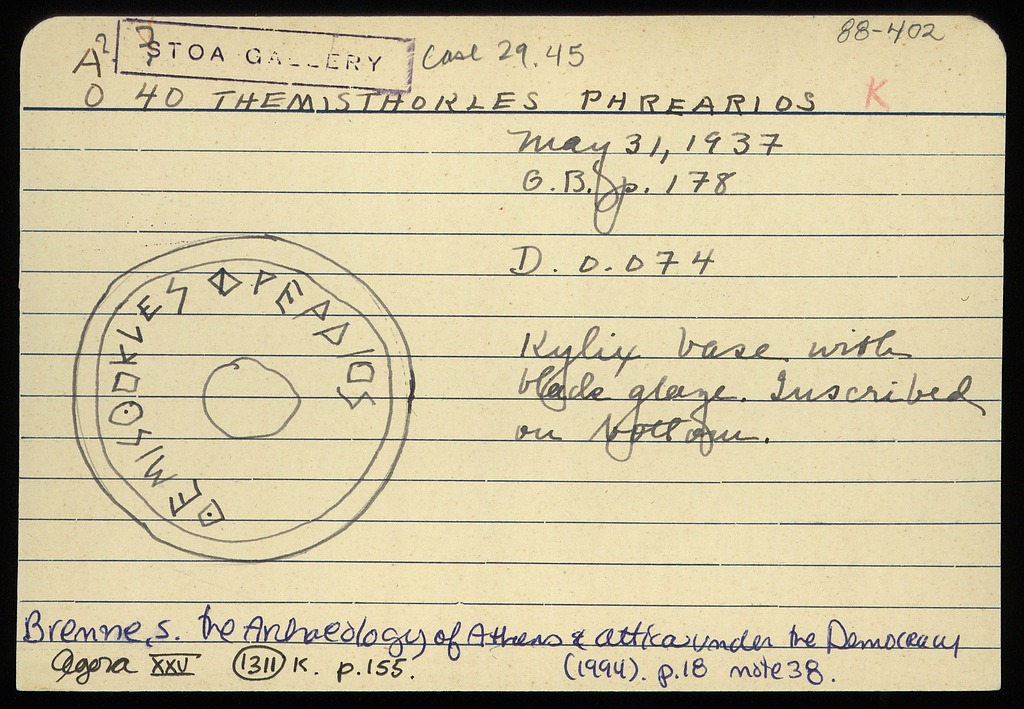 88-402
A² 7 STOA GALLERY Case 29.45
O 40 THEMISTHOKLES PHREARIOS K
May 31, 1937
G.B. p. 178
D. 0.074
Kylix base with
black glaze. Inscribed
on bottom.
Brenne, S. the Archaeology of Athens & Attica under the Democracy
Agora XXV 1311 K. p.155. (1994). p.18 note 38.